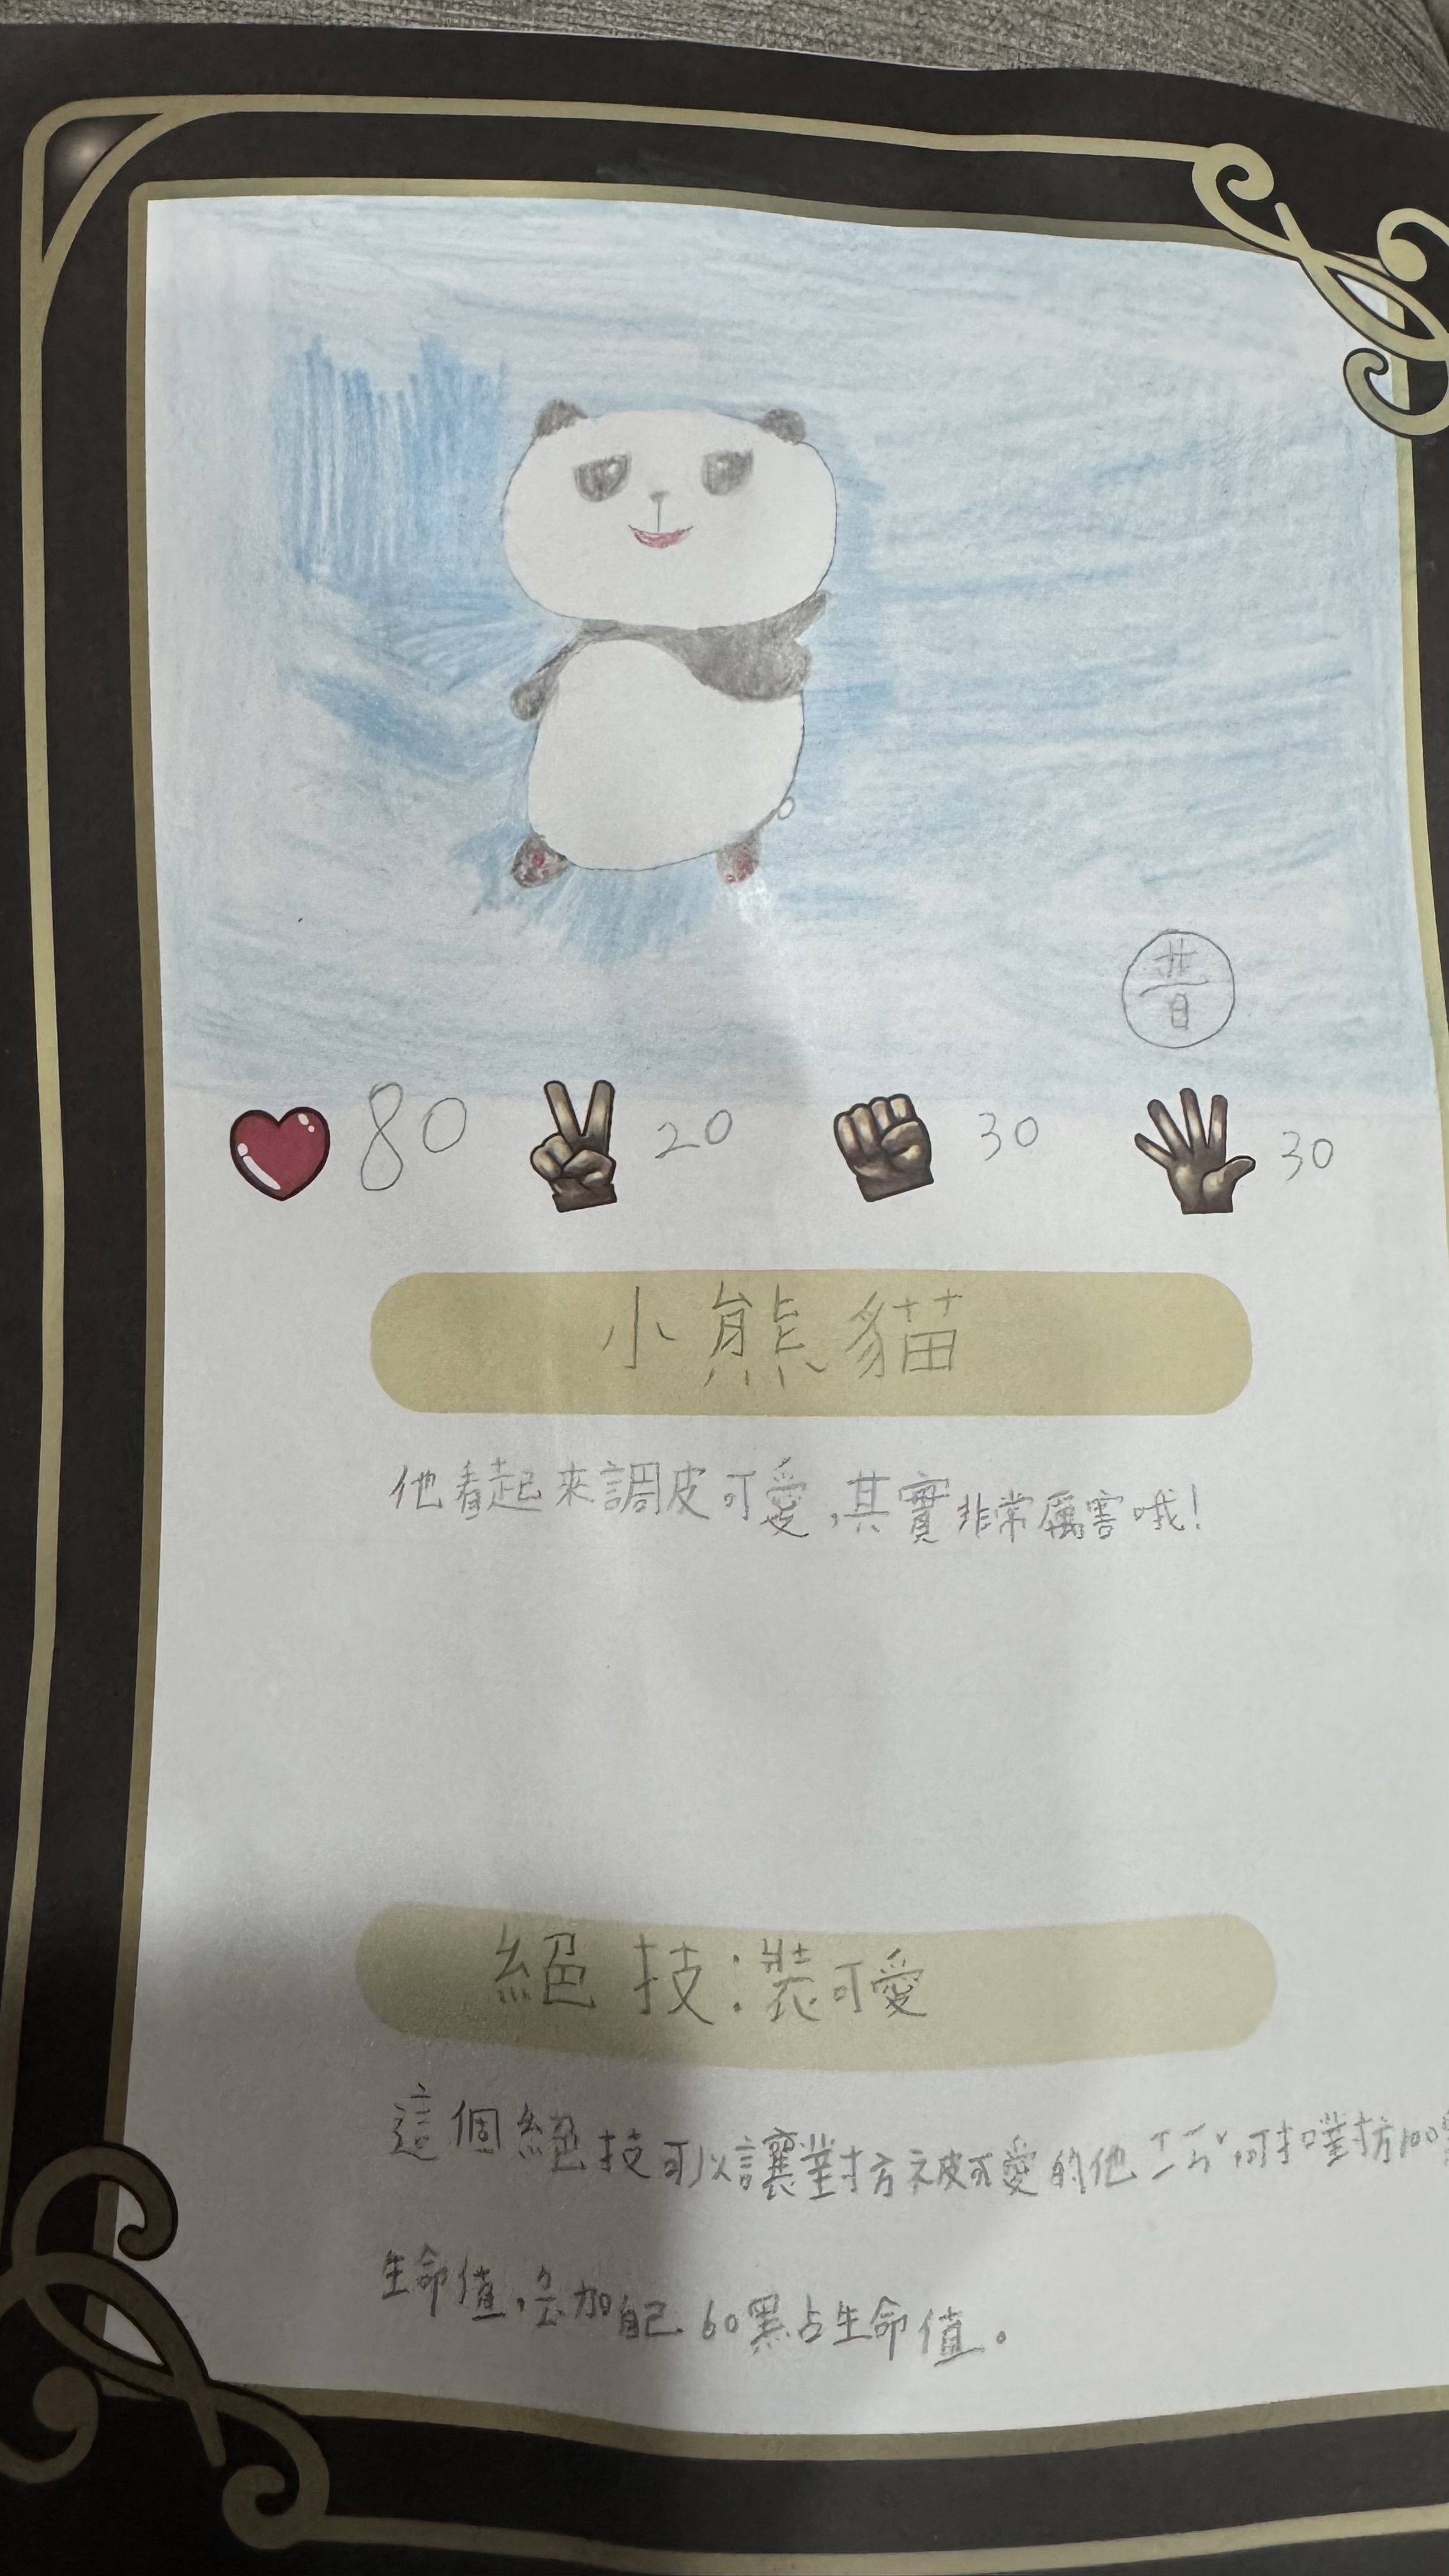 80 20 30 30
小熊貓
他看起來調皮可愛,其實非常厲害哦!
絕技:裝可愛
這個絕技可以讓對方被可愛的他ㄒㄧㄚˋ 可扣對方100
生命值,會加自己60點生命值。